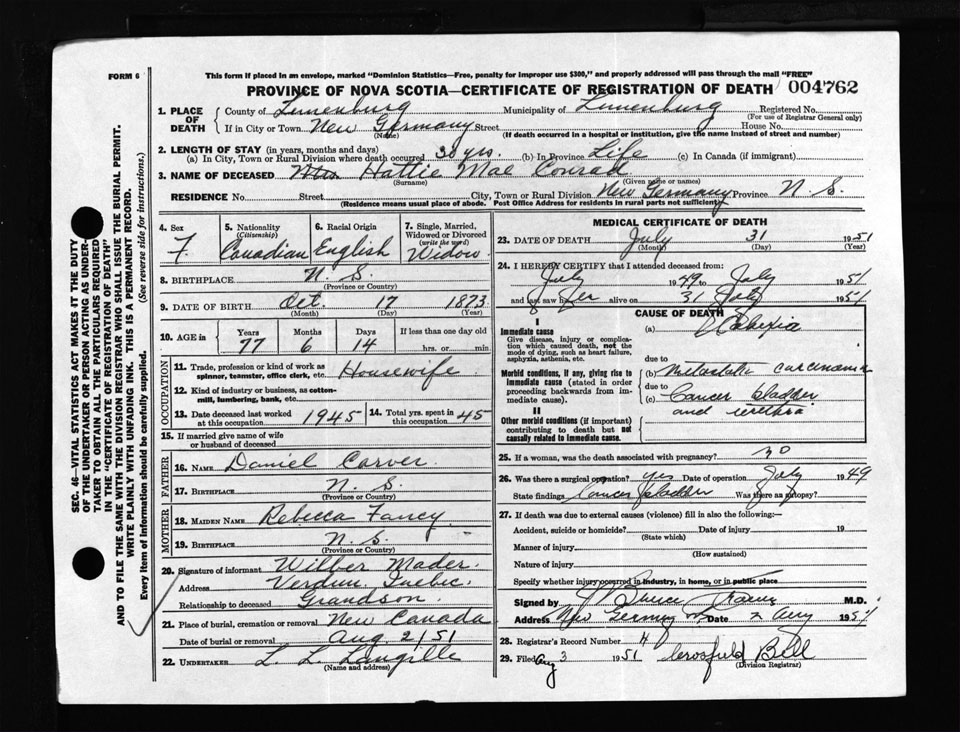 FORM 6
This form if placed in an envelope, marked "Dominion Statistics—Free, penalty for improper use $300," and properly addressed will pass through the mail "FREE"
PROVINCE OF NOVA SCOTIA—CERTIFICATE OF REGISTRATION OF DEATH 004762
1. PLACE OF DEATH
County of Lunenburg Municipality of Lunenburg Registered No.
(For use of Registrar General only)
If in City or Town New Germany Street House No.
(Name) (If death occurred in a hospital or institution, give the name instead of street and number)
2. LENGTH OF STAY (in years, months and days)
(a) In City, Town or Rural Division where death occurred 30 yrs. (b) In Province Life (c) In Canada (if immigrant)
3. NAME OF DECEASED Mrs. Hattie Mae Conrad
(Surname) (Given name or names)
RESIDENCE No. Street City, Town or Rural Division New Germany Province N S.
(Residence means usual place of abode. Post Office Address for residents in rural parts not sufficient)
4. Sex F.
5. Nationality (Citizenship) Canadian
6. Racial Origin English
7. Single, Married, Widowed or Divorced (write the word) Widow
8. BIRTHPLACE N. S.
(Province or Country)
9. DATE OF BIRTH Oct. 17 1873
(Month) (Day) (Year)
10. AGE in Years 77 Months 6 Days 14 If less than one day old hrs. or min.
OCCUPATION
11. Trade, profession or kind of work as spinner, teamster, office clerk, etc. Housewife
12. Kind of industry or business, as cotton-mill, lumbering, bank, etc.
13. Date deceased last worked at this occupation 1945
14. Total yrs. spent in this occupation 45
15. If married give name of wife or husband of deceased
FATHER
16. NAME Daniel Carver.
17. BIRTHPLACE N. S.
(Province or Country)
MOTHER
18. MAIDEN NAME Rebecca Fancy.
19. BIRTHPLACE N. S.
(Province or Country)
20. Signature of informant Wilber Mader.
Address Verdun, Quebec.
Relationship to deceased Grandson.
21. Place of burial, cremation or removal New Canada
Date of burial or removal Aug 2/51
22. UNDERTAKER L. L. Langille
(Name and address)
MEDICAL CERTIFICATE OF DEATH
23. DATE OF DEATH July 31 1951
(Month) (Day) (Year)
24. I HEREBY CERTIFY that I attended deceased from:
July 1949 to July 1951
and last saw her alive on 31 July 1951
CAUSE OF DEATH
I
Immediate cause
Give disease, injury or complication which caused death, not the mode of dying, such as heart failure, asphyxia, asthenia, etc.
(a)
due to
Morbid conditions, if any, giving rise to immediate cause (stated in order proceeding backwards from immediate cause).
(b) Metastatic carcinoma
due to
(c) Cancer bladder
and urethra
II
Other morbid conditions (if important) contributing to death but not causally related to immediate cause.
25. If a woman, was the death associated with pregnancy? no
26. Was there a surgical operation? yes Date of operation July 1949
State findings Cancer bladder Was there an autopsy?
27. If death was due to external causes (violence) fill in also the following:—
Accident, suicide or homicide? Date of injury 19
(State which)
Manner of injury
(How sustained)
Nature of injury
Specify whether injury occurred in industry, in home, or in public place
Signed by M.D.
Address New Germany Date 2 Aug 1951
28. Registrar's Record Number 4
29. Filed Aug 3 1951 Crossfield Bell
(Division Registrar)
SEC. 46—VITAL STATISTICS ACT MAKES IT THE DUTY
OF THE UNDERTAKER OR PERSON ACTING AS UNDER-
TAKER TO OBTAIN ALL THE PARTICULARS REQUIRED
IN THE "CERTIFICATE OF REGISTRATION OF DEATH"
AND TO FILE THE SAME WITH THE DIVISION REGISTRAR WHO SHALL ISSUE THE BURIAL PERMIT.
WRITE PLAINLY WITH UNFADING INK. THIS IS A PERMANENT RECORD.
Every item of information should be carefully supplied. (See reverse side for instructions.)